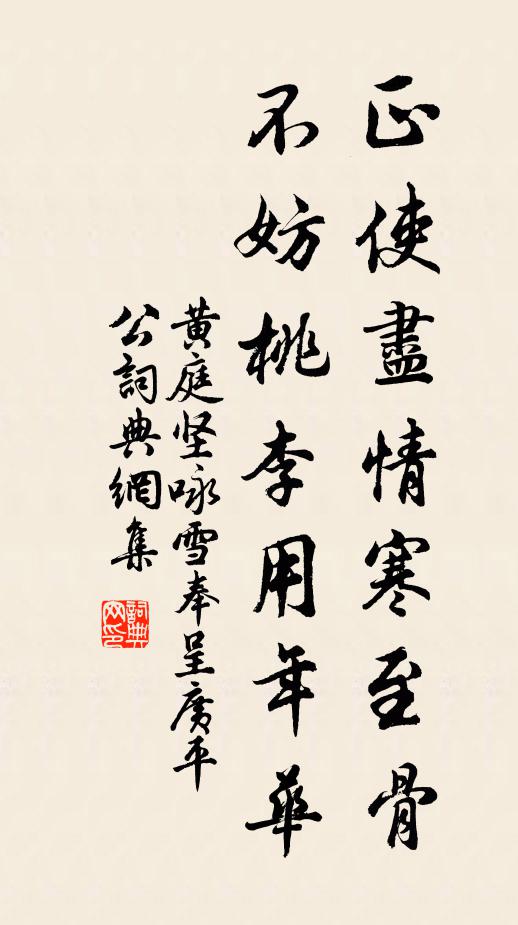 正使盡情寒至骨
不妨桃李用年華
黃庭坚咏雪奉呈广平
公詞典網集
詞典网印